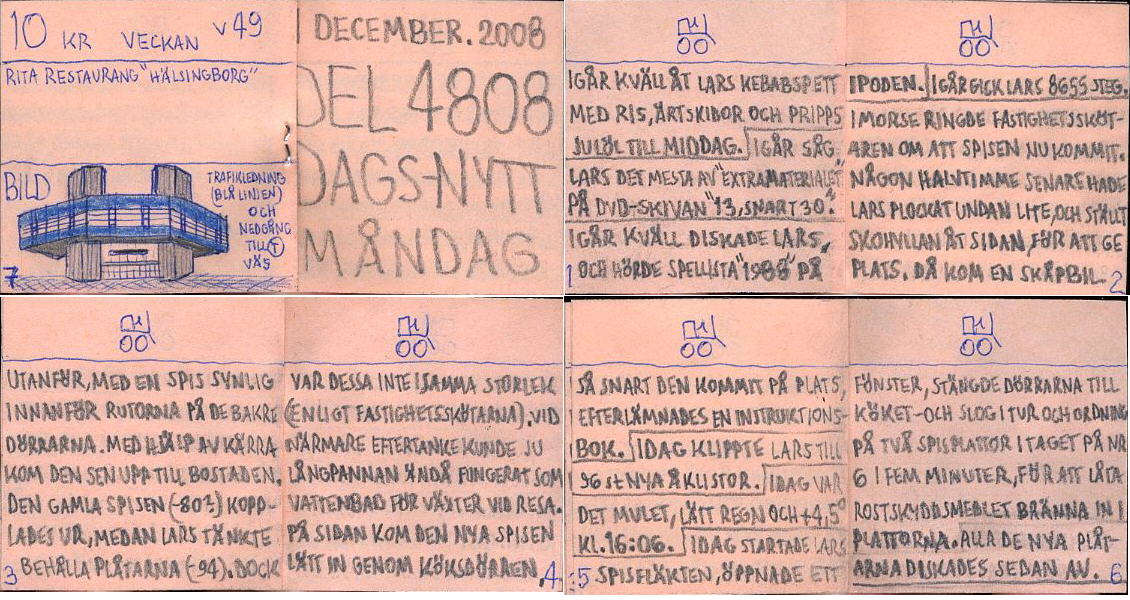 10 KR VECKAN v49
RITA RESTAURANG "HÄLSINGBORG"
BILD
TRAFIKLEDNING
(BLÅ LINIEN)
OCH
NEDGÅNG
TILL T
VÄS
7
1 DECEMBER. 2008
DEL 4808
DAGS-NYTT
MÅNDAG
IGÅR KVÄLL ÅT LARS KEBABSPETT
MED RIS, ÄRTSKIDOR OCH PRIPPS
JULÖL TILL MIDDAG. IGÅR SÅG
LARS DET MESTA AV "EXTRAMATERIALET"
PÅ DVD-SKIVAN "13, SNART 30".
IGÅR KVÄLL DISKADE LARS,
OCH HÖRDE SPELLISTA "1988" PÅ
1
IPODEN. IGÅR GICK LARS 8655 STEG.
IMORSE RINGDE FASTIGHETSSKÖT-
AREN OM ATT SPISEN NU KOMMIT.
NÅGON HALVTIMME SENARE HADE
LARS PLOCKAT UNDAN LITE, OCH STÄLLT
SKOHYLLAN ÅT SIDAN, FÖR ATT GE
PLATS. DÅ KOM EN SKÅPBIL
2
UTANFÖR, MED EN SPIS SYNLIG
INNANFÖR RUTORNA PÅ DE BAKRE
DÖRRARNA. MED HJÄLP AV KÄRRA
KOM DEN SEN UPP TILL BOSTADEN.
DEN GAMLA SPISEN (-80?) KOPP-
LADES UR, MEDAN LARS TÄNKTE
BEHÅLLA PLÅTARNA (-94). DOCK
3
VAR DESSA INTE I SAMMA STORLEK
(ENLIGT FASTIGHETSSKÖTARNA). VID
NÄRMARE EFTERTANKE KUNDE JU
LÅNGPANNAN ÄNDÅ FUNGERAT SOM
VATTENBAD FÖR VÄXTER VID RESA.
PÅ SIDAN KOM DEN NYA SPISEN
LÄTT IN GENOM KÖKSDÖRREN,
4
SÅ SNART DEN KOMMIT PÅ PLATS,
EFTERLÄMNADES EN INSTRUKTIONS-
BOK. IDAG KLIPPTE LARS TILL
96 st NYA ÅKLISTOR. IDAG VAR
DET MULET, LÄTT REGN OCH +4,5°
KL. 16:06. IDAG STARTADE LARS
SPISFLÄKTEN, ÖPPNADE ETT
5
FÖNSTER, STÄNGDE DÖRRARNA TILL
KÖKET - OCH SLOG I TUR OCH ORDNING
PÅ TVÅ SPISPLATTOR I TAGET PÅ NR
6 I FEM MINUTER, FÖR ATT LÅTA
ROSTSKYDDSMEDLET BRÄNNA IN I
PLATTORNA. ALLA DE NYA PLÅT-
ARNA DISKADES SEDAN AV.
6